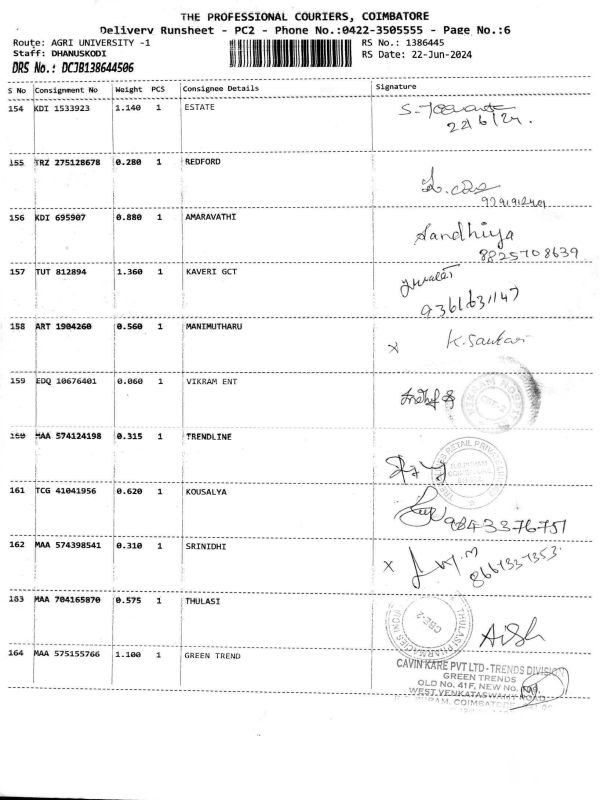 THE PROFESSIONAL COURIERS, COIMBATORE
Delivery Runsheet - PC2 - Phone No.:0422-3505555 - Page No.:6
Route: AGRI UNIVERSITY -1 RS No.: 1386445
Staff: DHANUSKODI RS Date: 22-Jun-2024
DRS No.: DCJB138644506
S No Consignment No Weight PCS Consignee Details Signature
154 KDI 1533923 1.140 1 ESTATE
22/6/24.
155 TRZ 275128678 0.280 1 REDFORD
156 KDI 695907 0.880 1 AMARAVATHI Sandhiya
8825708639
157 TUT 812894 1.360 1 KAVERI GCT
9361631147
158 ART 1904260 0.560 1 MANIMUTHARU x K.Sankari
159 EDQ 10676401 0.060 1 VIKRAM ENT
160 MAA 574124198 0.315 1 TRENDLINE
161 TCG 41041956 0.620 1 KOUSALYA
9843376751
162 MAA 574398541 0.310 1 SRINIDHI x
163 MAA 704165870 0.575 1 THULASI
THULASI PHARMACIES INDIA
CBE-2
Aish
164 MAA 575155766 1.100 1 GREEN TREND
CAVIN KARE PVT LTD - TRENDS DIVISION
GREEN TRENDS
OLD No. 41F, NEW No.
WEST VENKATASWAMY ROAD,